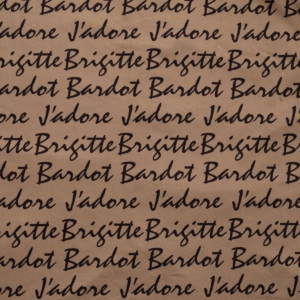 dot Bardot Bardot Bardot
J'adore J'adore J'adore
Brigitte Brigitte Brigitte Brigitte
Bardot Bardot Bardot Bardot
adore J'adore J'adore J'adore
itte Brigitte Brigitte Brigitte
dot Bardot Bardot Bardot
adore J'adore J'adore J'adore
rigitte Brigitte Brigitte Brigitte
Bardot Bardot Bardot Bardot
dore J'adore J'adore J'adore